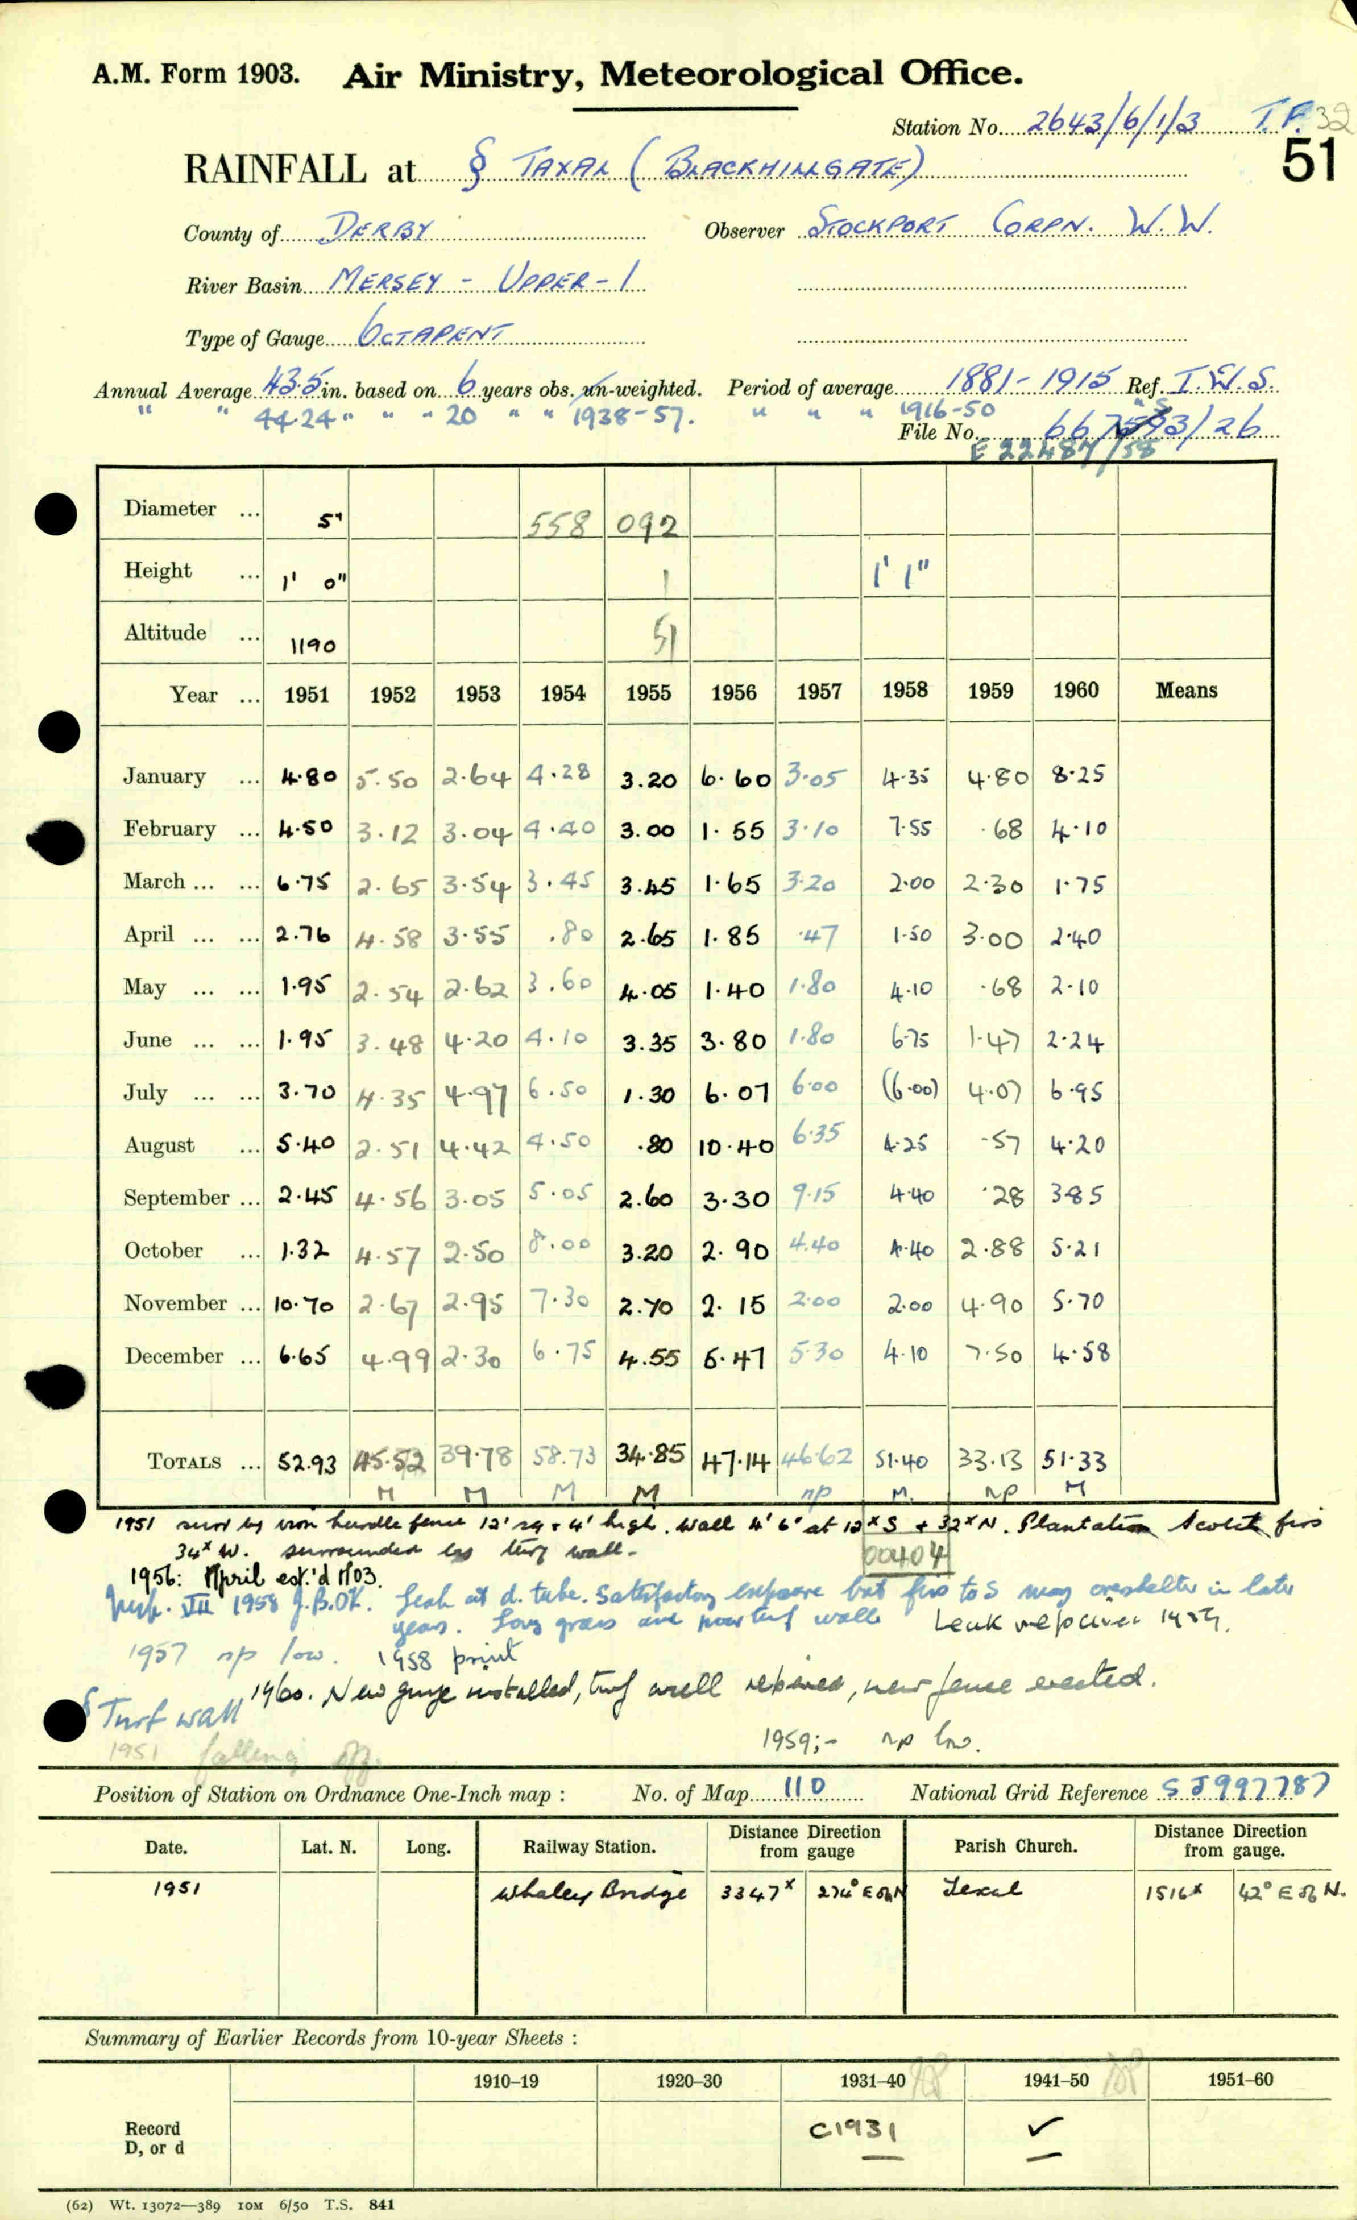 A.M. Form 1903. Air Ministry, Meteorological Office.
Station No. 2643/6/1/3 T.F. 32
RAINFALL at § TAXAL (BLACKHILLGATE) 51
County of DERBY Observer STOCKPORT CORPN. W.W.
River Basin MERSEY - UPPER - 1
Type of Gauge OCTAPENT
Annual Average 43.5 in. based on 6 years obs. un-weighted. Period of average 1881-1915 Ref. I.W.S.
" " 44.24 " " " 20 " " 1938-57. " " " 1916-50 "
File No. 3/26
E 22487/58
Diameter ... 5" 558 092
Height ... 1' 0" 1 1' 1"
Altitude ... 1190 51
Year ... 1951 1952 1953 1954 1955 1956 1957 1958 1959 1960 Means
January ... 4.80 5.50 2.64 4.28 3.20 6.60 3.05 4.35 4.80 8.25
February ... 4.50 3.12 3.04 4.40 3.00 1.55 3.10 7.55 .68 4.10
March ... ... 6.75 2.65 3.54 3.45 3.45 1.65 3.20 2.00 2.30 1.75
April ... ... 2.76 4.58 3.55 .80 2.65 1.85 .47 1.50 3.00 2.40
May ... ... 1.95 2.54 2.62 3.60 4.05 1.40 1.80 4.10 .68 2.10
June ... ... 1.95 3.48 4.20 4.10 3.35 3.80 1.80 6.75 1.47 2.24
July ... ... 3.70 4.35 4.97 6.50 1.30 6.07 6.00 (6.00) 4.07 6.95
August ... 5.40 2.51 4.42 4.50 .80 10.40 6.35 4.25 .57 4.20
September ... 2.45 4.56 3.05 5.05 2.60 3.30 9.15 4.40 .28 3.85
October ... 1.32 4.57 2.50 8.00 3.20 2.90 4.40 4.40 2.88 5.21
November ... 10.70 2.67 2.95 7.30 2.70 2.15 2.00 2.00 4.90 5.70
December ... 6.65 4.99 2.30 6.75 4.55 5.47 5.30 4.10 7.50 4.58
TOTALS ... 52.93 45.52 39.78 58.73 34.85 47.14 46.62 51.40 33.13 51.33
M M M M np M. np M
1951 surr by iron hurdle fence 12' sq + 4' high. Wall 4' 6" at 12x S + 32x N. Plantation Scotch firs
34x W. surrounded by turf wall.
00404
1956: April est.'d
Insp. VII 1958 J.B. OK. Leak at d. tube. Satisfactory exposure but firs to S may overshelter in later
years. Long grass and poor turf wall. Leak 1959.
1957 np low. 1958 print
1960. New gauge installed, turf wall repaired, new fence erected.
§ Turf wall
1951 falling off.
1959;- np low.
Position of Station on Ordnance One-Inch map : No. of Map 110 National Grid Reference SJ997787
Date. Lat. N. Long. Railway Station. Distance from gauge Direction Parish Church. Distance from gauge. Direction
1951 Whaley Bridge 3347x 274° E of N Taxal 1516x 42° E of N.
Summary of Earlier Records from 10-year Sheets :
1910–19 1920–30 1931–40 1941–50 1951–60
Record D, or d C1931 ✓
(62) Wt. 13072—389 10M 6/50 T.S. 841